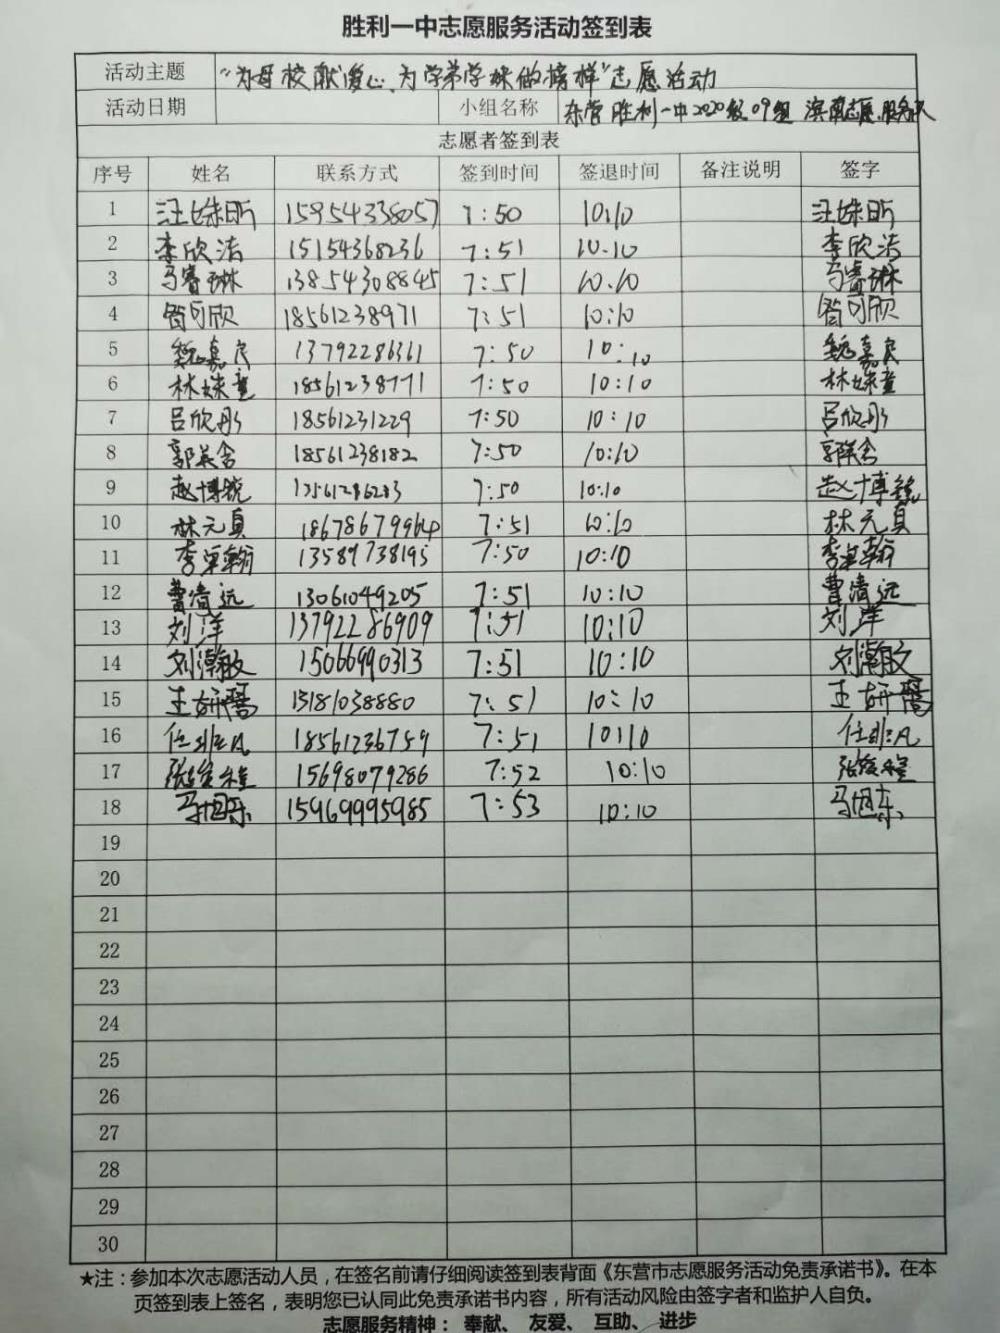 胜利一中志愿服务活动签到表
活动主题 "为母校献爱心、为学弟学妹做榜样"志愿活动
活动日期 小组名称 东营胜利一中2020级09组 滨南志愿服务队
志愿者签到表
序号 姓名 联系方式 签到时间 签退时间 备注说明 签字
1 汪姝昕 15954338057 7:50 10:10 汪姝昕
2 李欣洁 15154368236 7:51 10.10 李欣洁
3 马睿琳 13854308845 7:51 10.10 马睿琳
4 昝可欣 18561238971 7:51 10:10 昝可欣
5 魏嘉良 13792286361 7:50 10:10 魏嘉良
6 林姝童 18561238771 7:50 10:10 林姝童
7 吕欣彤 18561231229 7:50 10:10 吕欣彤
8 郭 18561238182 7:50 10:10 郭
9 赵博锐 7:50 10:10 赵博锐
10 林元真 18678679964 7:51 10:10 林元真
11 李 翰 13589738195 7:50 10:10 李 翰
12 曹清远 13061049205 7:51 10:10 曹清远
13 刘洋 13792286909 7:51 10:10 刘洋
14 刘瀚文 15066990313 7:51 10:10 刘瀚文
15 王妍 13181038880 7:51 10:10 王妍
16 任非凡 18561236759 7:51 10:10 任非凡
17 张 程 15698079286 7:52 10:10 张 程
18 马旭东 15969995985 7:53 10:10 马旭东
19
20
21
22
23
24
25
26
27
28
29
30
★注：参加本次志愿活动人员，在签名前请仔细阅读签到表背面《东营市志愿服务活动免责承诺书》。在本
页签到表上签名，表明您已认同此免责承诺书内容，所有活动风险由签字者和监护人自负。
志愿服务精神： 奉献、 友爱、 互助、 进步